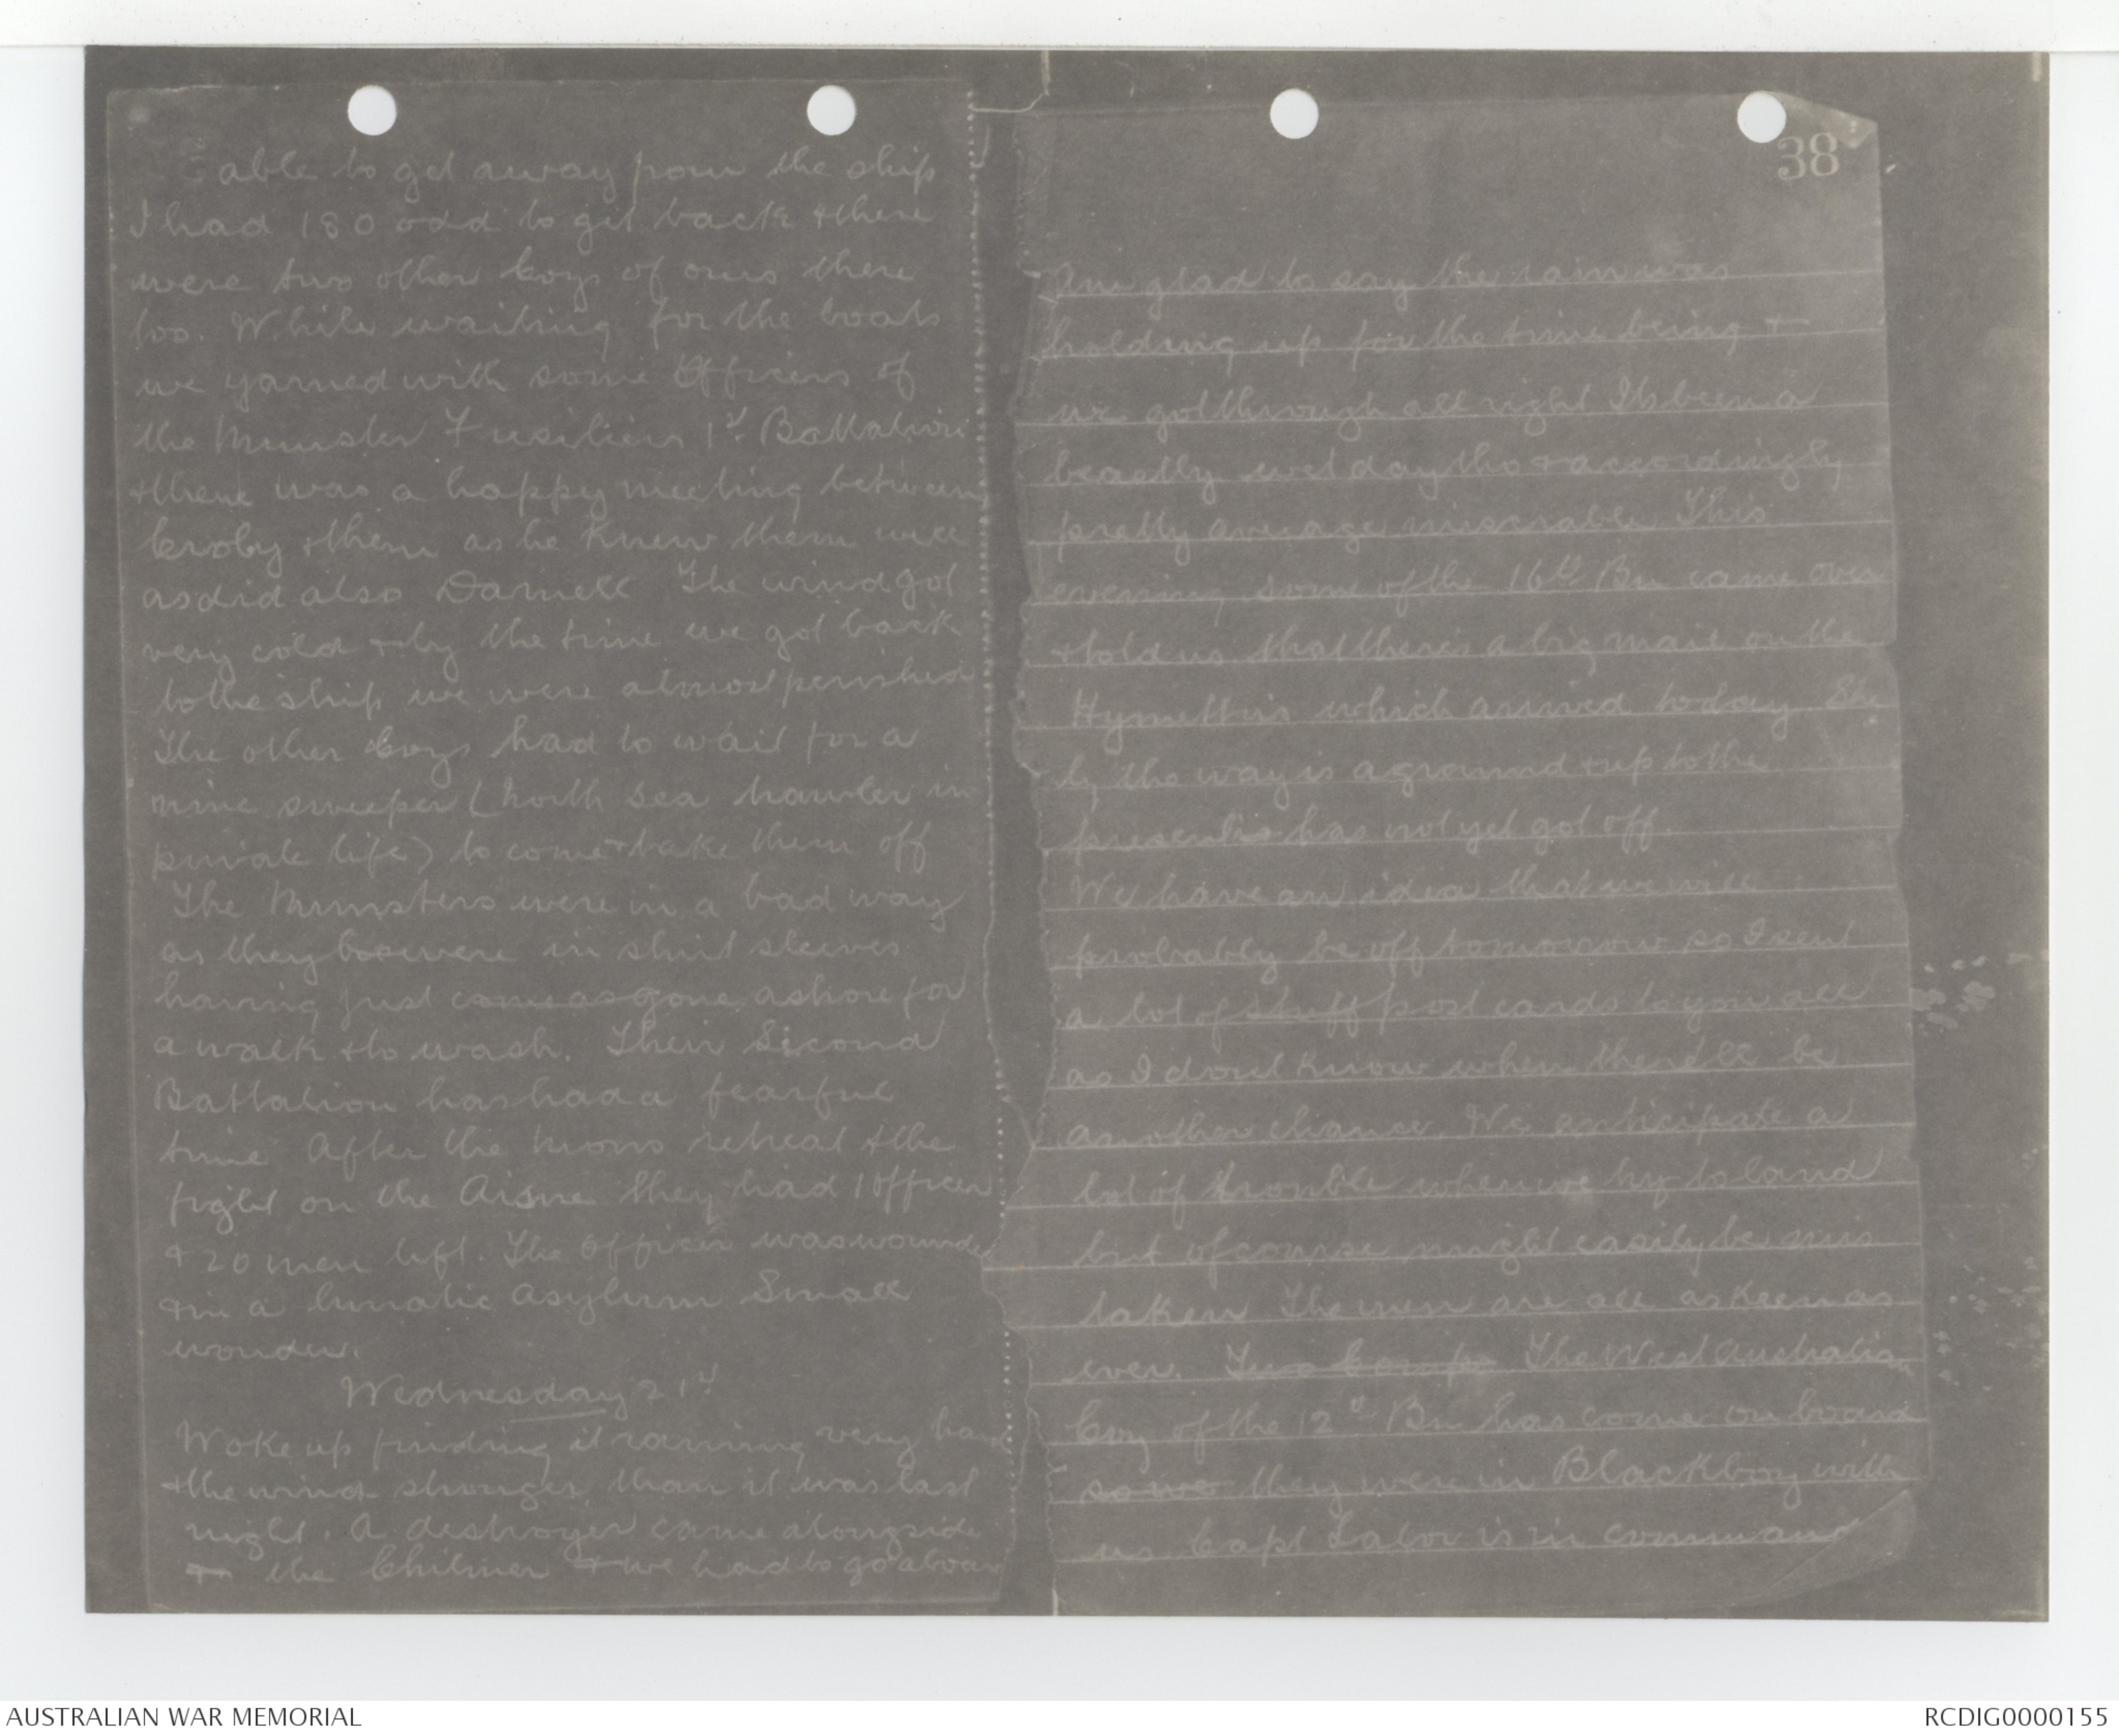 able to get away from the ship
I had 180 odd to get back & there
were two other Coys of ours there
too. While waiting for the boats
we yarned with some Officers of
the Munster Fusiliers 1st Battalion
& there was a happy meeting between
Croby & them as he knew them well
as did also Darnell The wind got
very cold & by the time we got back
to the ship we were almost perished
The other Coys had to wait for a
mine sweeper (North Sea trawler in
private life) to come & take them off
The Munsters were in a bad way
as they too were in shirt sleeves
having just come as gone ashore for
a walk & to wash. Their Second
Battalion has had a fearful
time After the Mons retreat & the
fight on the Aisne they had 1 Officer
& 20 men left. The Officer was wounded
& in a lunatic asylum Small
wonder.
Wednesday 21st
Woke up finding it raining very hard
& the wind stronger than it was last
night. A destroyer came alongside
& the Chelmer & we had to go aboar
38
Am glad to say the rain was
holding up for the time being &
we got through all right Its been a
beastly wet day tho & accordingly
pretty average miserable This
evening some of the 16th Bn came over
& told us that theres a big mail on the
Hymettus which arrived today She
by the way is aground & up to the
present is has not yet got off.
We have an idea that we will
probably be off tomorrow so I sent
a lot of stuff post cards to you all
as I dont know when there'll be
another chance. We anticipate a
lot of trouble when we try to land
but of course might easily be mis
taken The men are all as keen as
ever. Two Comps The West Australian
Coy of the 12th Bn has come on board
so we they were in Blackboy with
us Capt Lalor is in command
AUSTRALIAN WAR MEMORIAL
RCDIG0000155